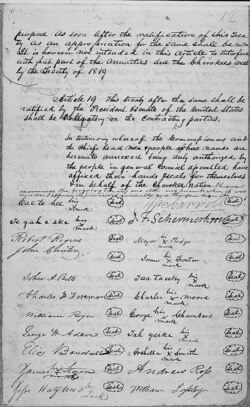 purpose as soon after the ratification of this Treaty
as an appropriation for the same shall be made
It is however not intended in this article to interfere
with that part of the annuities due the Cherokees West
by the Treaty of 1819
Article 19. This treaty after the same shall be
ratified by the President & Senate of the United States
shall be obligatory on the Contracting parties.
In testimony whereof the
and
the Chiefs head men & people whose names are
hereunto annexed being duly authorized by
the people in general Council assembled have
affixed their hands & seals for themselves
& in behalf of the Cherokee Nation
Cae te hee his x mark Seal
J. F. Schermerhorn
Te gah e ske his x mark Seal
Robert Rogers Seal Major his x mark Ridge Seal
John Gunter Seal James his x mark Foster Seal
John A Bell Seal his x mark Seal
Charles F Foreman Seal Charles his x mark Moore Seal
William Rogers Seal George his x mark Chambers Seal
George W. Adair Seal Tah yeske his x mark Seal
Elias Boudinot Seal his x mark Smith Seal
James Seal Andrew Ross Seal
Jesse Halfbreed his x mark Seal William Lasley Seal